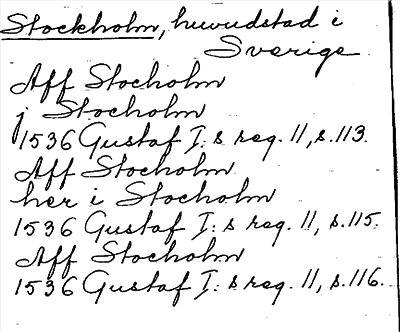 Stockholm, huvudstad i
Sverige
Aff Stocholm
j Stocholm
1536 Gustaf I:s reg. 11, s.113.
Aff Stocholm
her i Stocholm
1536 Gustaf I:s reg. 11, s.115.
Aff Stocholm
1536 Gustaf I:s reg. 11, s.116.